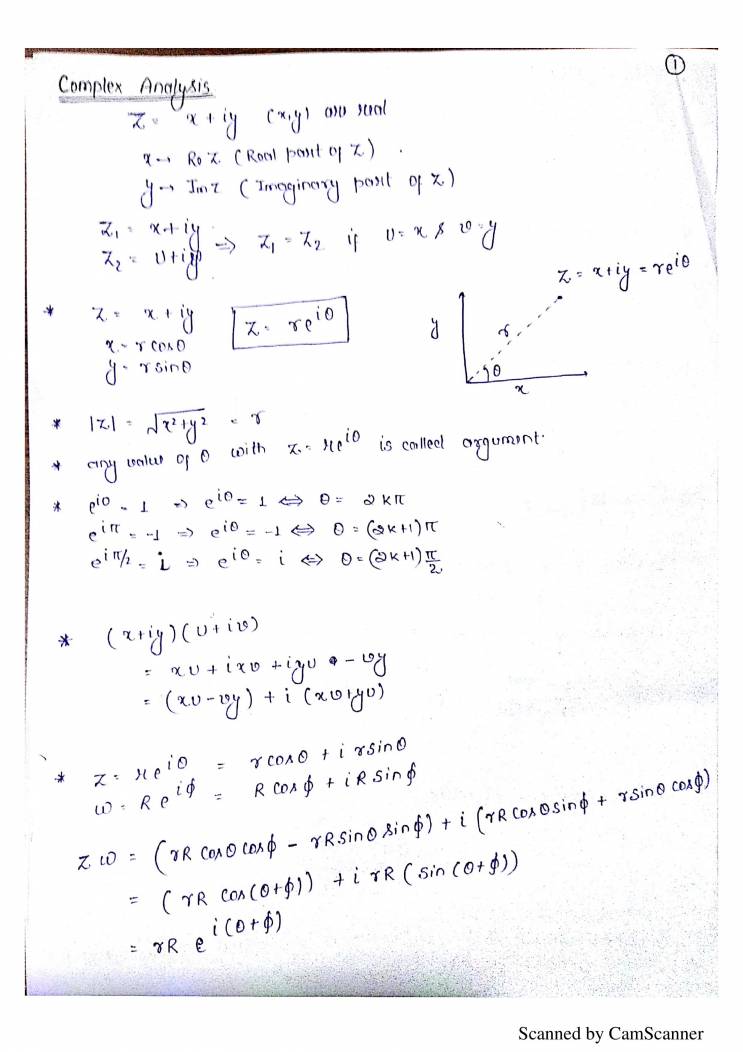 ①
Complex Analysis
Z = x + iy (x,y) are real
x → Re Z. (Real part of Z).
y → Im Z (Imaginary part of Z)
Z₁ = x + iy
Z₂ = υ + iy ⇒ Z₁ = Z₂ if υ = x & v = y
* Z = x + iy
x = r cosθ
y = r sinθ
Z = re^{iθ}
Z = x + iy = re^{iθ}
y r
θ
x
* |Z| = √x² + y² = r
* any value of θ with z = re^{iθ} is called argument.
* e^{i0} = 1 ⇒ e^{iθ} = 1 ⇔ θ = 2kπ
e^{iπ} = -1 ⇒ e^{iθ} = -1 ⇔ θ = (2k+1)π
e^{iπ/2} = i ⇒ e^{iθ} = i ⇔ θ = (2k+1)π/2
* (x+iy)(υ+iv)
= xυ + ixv + iyυ - vy
= (xυ - vy) + i (xv + yυ)
* Z = re^{iθ} = r cosθ + i r sinθ
ω = Re^{iϕ} = R cosϕ + iR sinϕ
Z ω = (rR cosθ cosϕ - rR sinθ sinϕ) + i (rR cosθ sinϕ + r sinθ cosϕ)
= (rR cos(θ+ϕ)) + i rR (sin(θ+ϕ))
= rR e^{i(θ+ϕ)}
Scanned by CamScanner